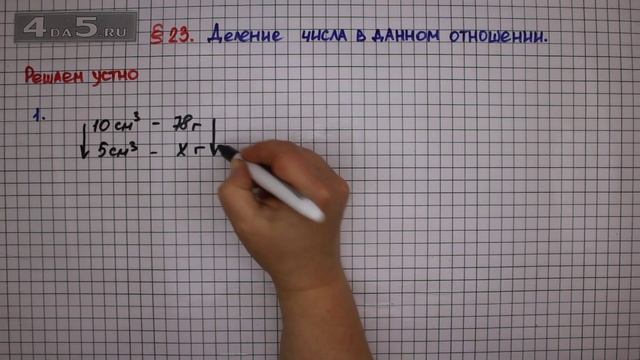 4DA5.RU
§ 23. Деление числа в данном отношении.
Решаем устно
1.
10 см³ - 78 г
5 см³ - х г